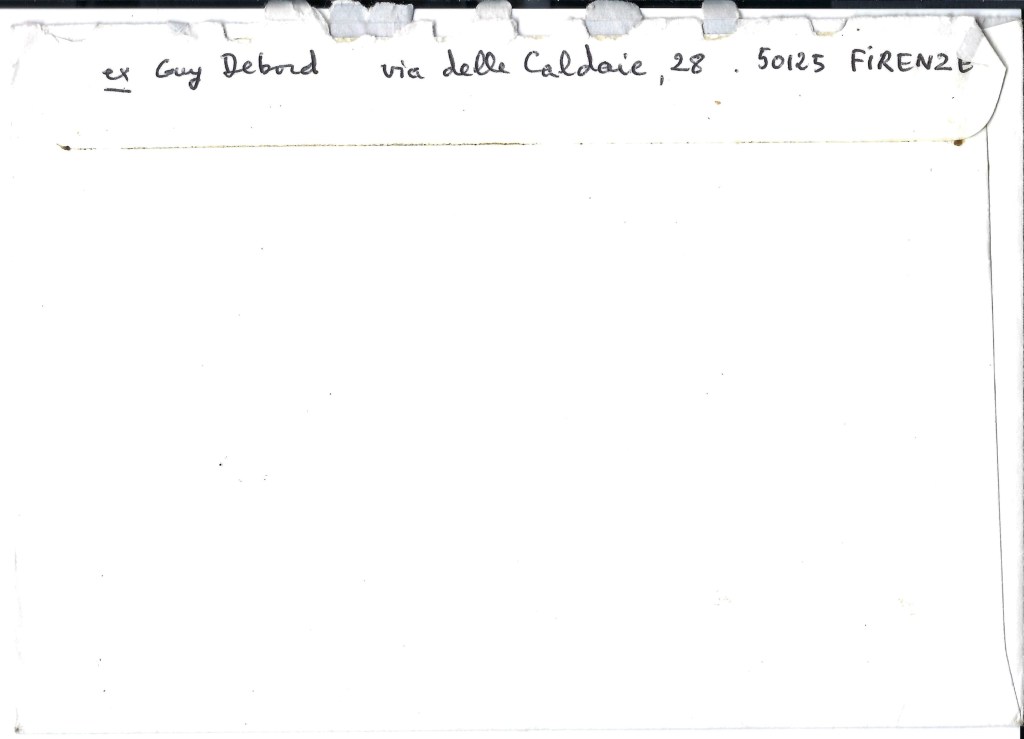 ex Guy Debord via delle Caldaie, 28 . 50125 FiRENZE